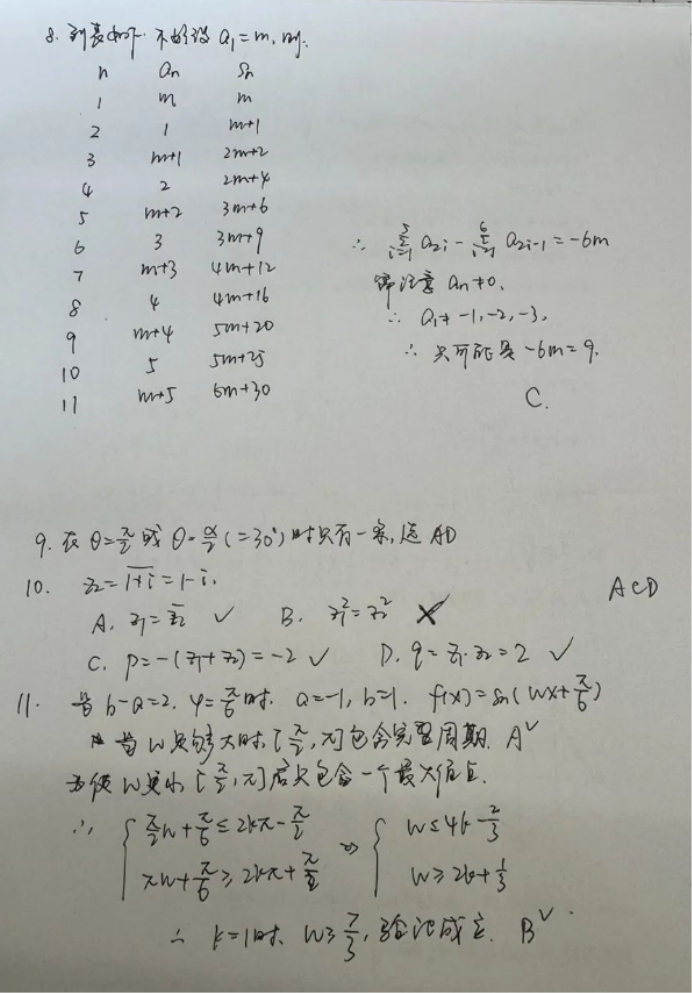 8. 列表如下. 不妨设 a₁=m, 则:
n aₙ Sₙ
1 m m
2 1 m+1
3 m+1 2m+2
4 2 2m+4
5 m+2 3m+6
6 3 3m+9
7 m+3 4m+12
8 4 4m+16
9 m+4 5m+20
10 5 5m+25
11 m+5 6m+30
∴ Σᵢ₌₁⁵ a₂ᵢ - Σᵢ₌₁⁶ a₂ᵢ₋₁ = -6m
注意 aₙ≠0,
∴ a₁≠ -1,-2,-3,
∴ 只可能是 -6m=9.
C.
9. 在 θ=π/2 或 θ=α/2 (=30°) 时只有一条, 选 AD
10. z₂=\overline{1+i}=1-i. ACD
A. z₁=\overline{z₂} ✓ B. z₁²=z₂² ✗
C. p=-(z₁+z₂)=-2 ✓ D. q=z₁·z₂=2 ✓
11. 当 b-a=2. φ=π/6 时. a=-1, b=1. f(x)=sin(wx+π/6)
当 w 足够大时, [π/2,π] 包含完整周期. A✓
为使 w 更小 [π/2,π] 应只包含一个最大值点.
∴ { π/2 w+π/6 ≤ 2kπ-π/2 ⇒ { w≤4k-2/3
πw+π/6 ≥ 2kπ+π/2 w≥2k+1/3
∴ k=1时, w≥7/3, 验证成立. B✓